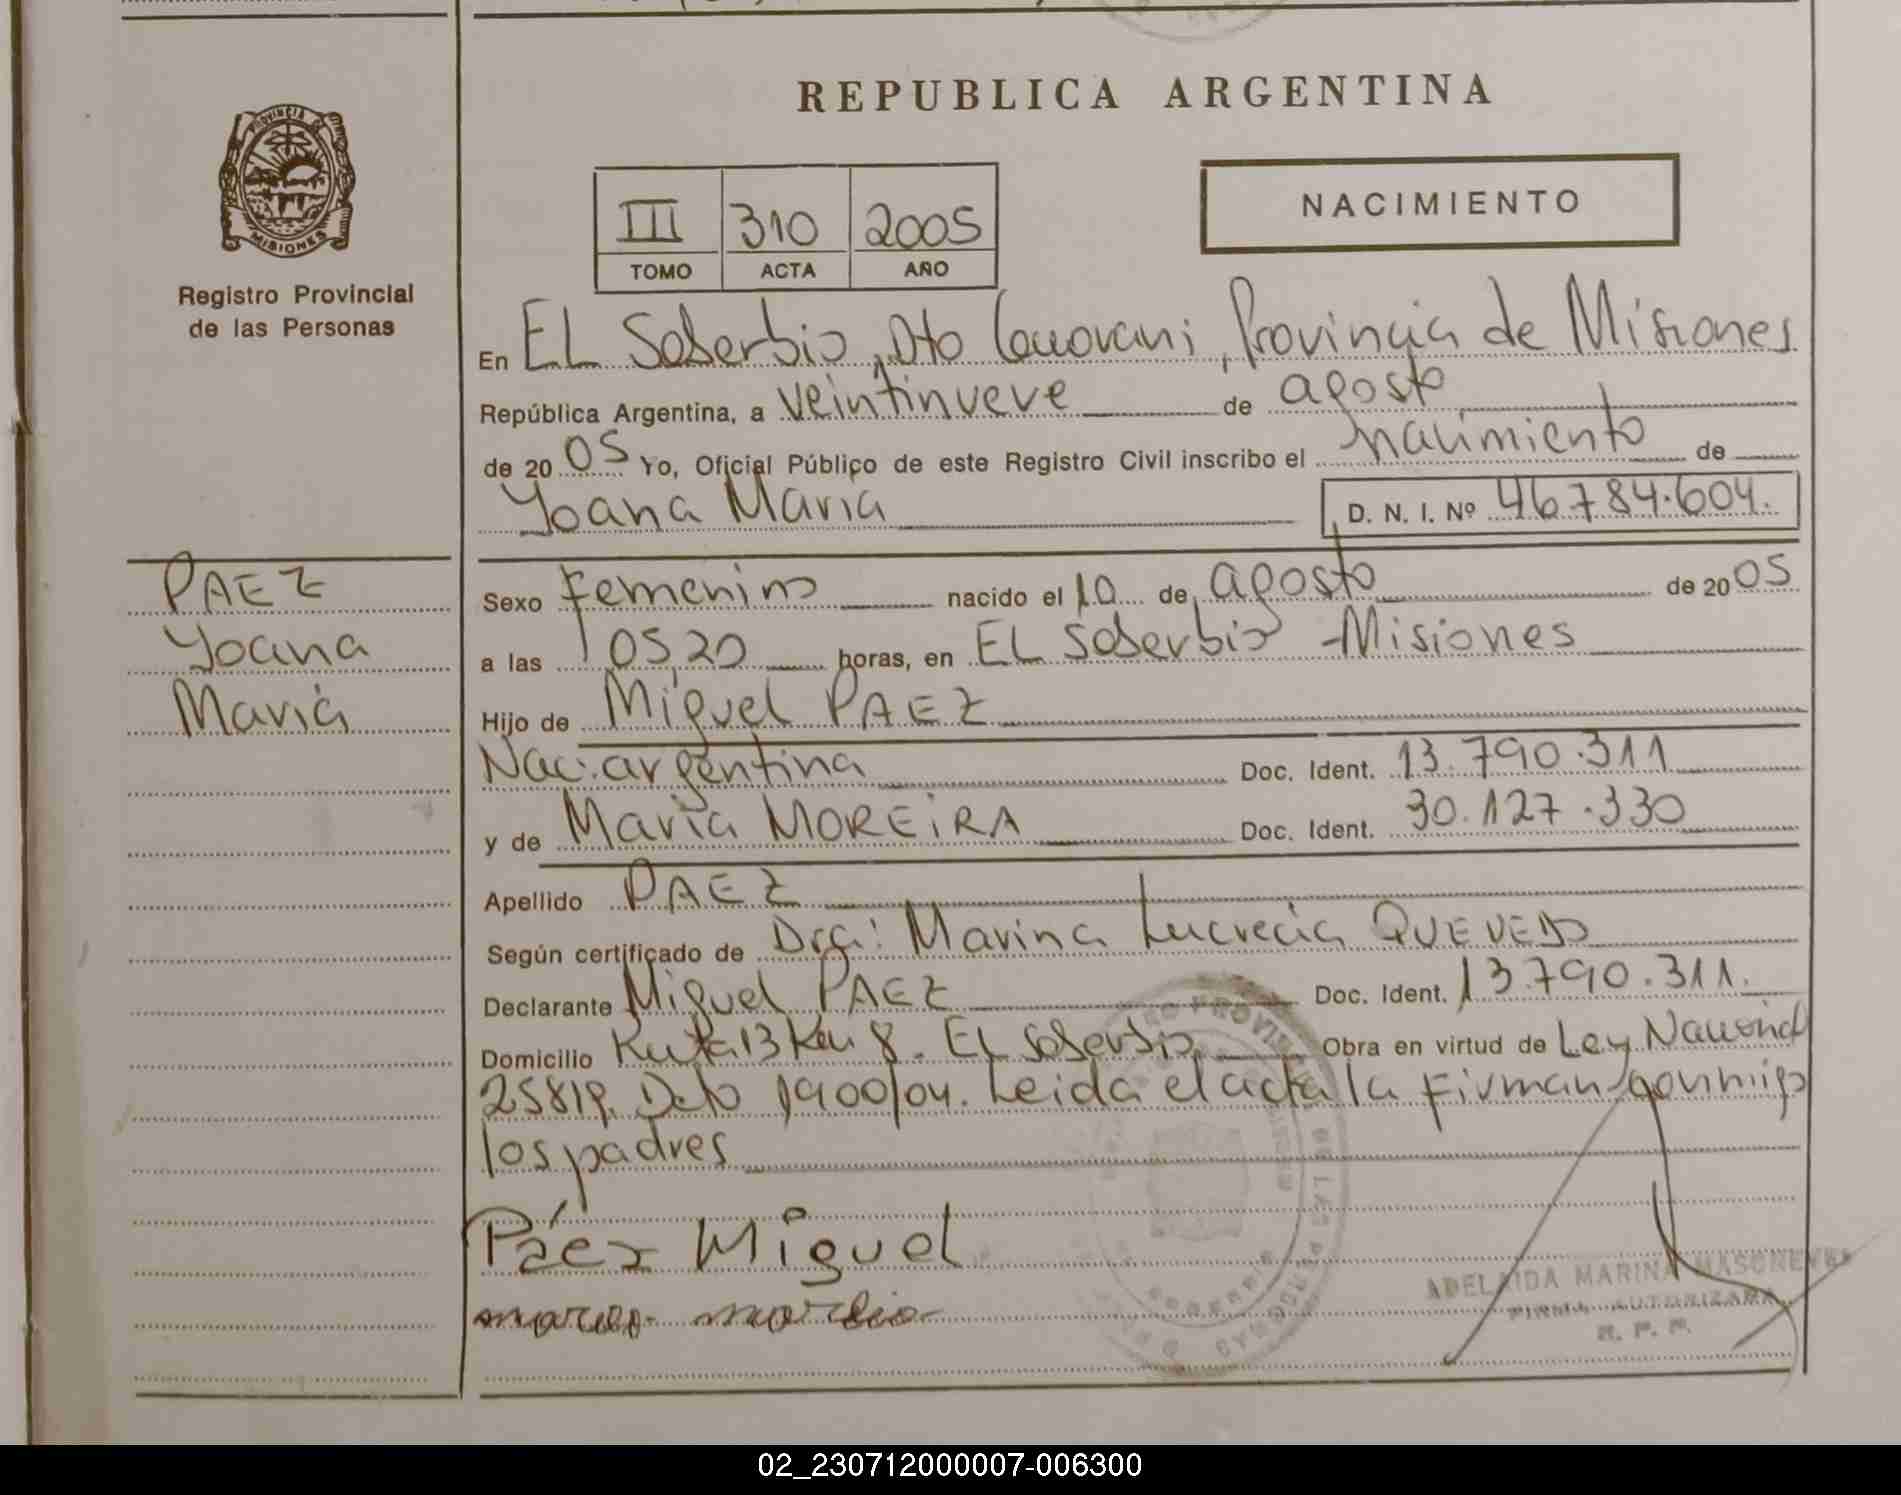 REPUBLICA ARGENTINA
PROVINCIA DE
MISIONES
Registro Provincial
de las Personas
III 310 2005
TOMO ACTA AÑO
NACIMIENTO
En EL Soberbio, Dto Guarani, Provincia de Misiones
República Argentina, a veintinueve de agosto
de 20 05 Yo, Oficial Público de este Registro Civil inscribo el nacimiento de
Yoana Maria D. N. I. Nº 46.784.604.
PAEZ
Yoana
Maria
Sexo Femenino nacido el 10 de agosto de 20 05
a las 05,20 horas, en EL Soberbio - Misiones
Hijo de Miguel PAEZ
Nac. argentina Doc. Ident. 13.790.311
y de Maria MOREIRA Doc. Ident. 30.127.330
Apellido PAEZ
Según certificado de Dra: Marina Lucrecia QUEVEDO
Declarante Miguel PAEZ Doc. Ident. 13.790.311.
Domicilio Ruta 13 Km 8. EL Soberbio Obra en virtud de Ley Nacional
25819, Dcto 1900/04. Leida el acta la Firman conmigo
los padres
Páez Miguel
ADELAIDA MARINA
FIRMA AUTORIZADA
R. P. P.
02_230712000007-006300